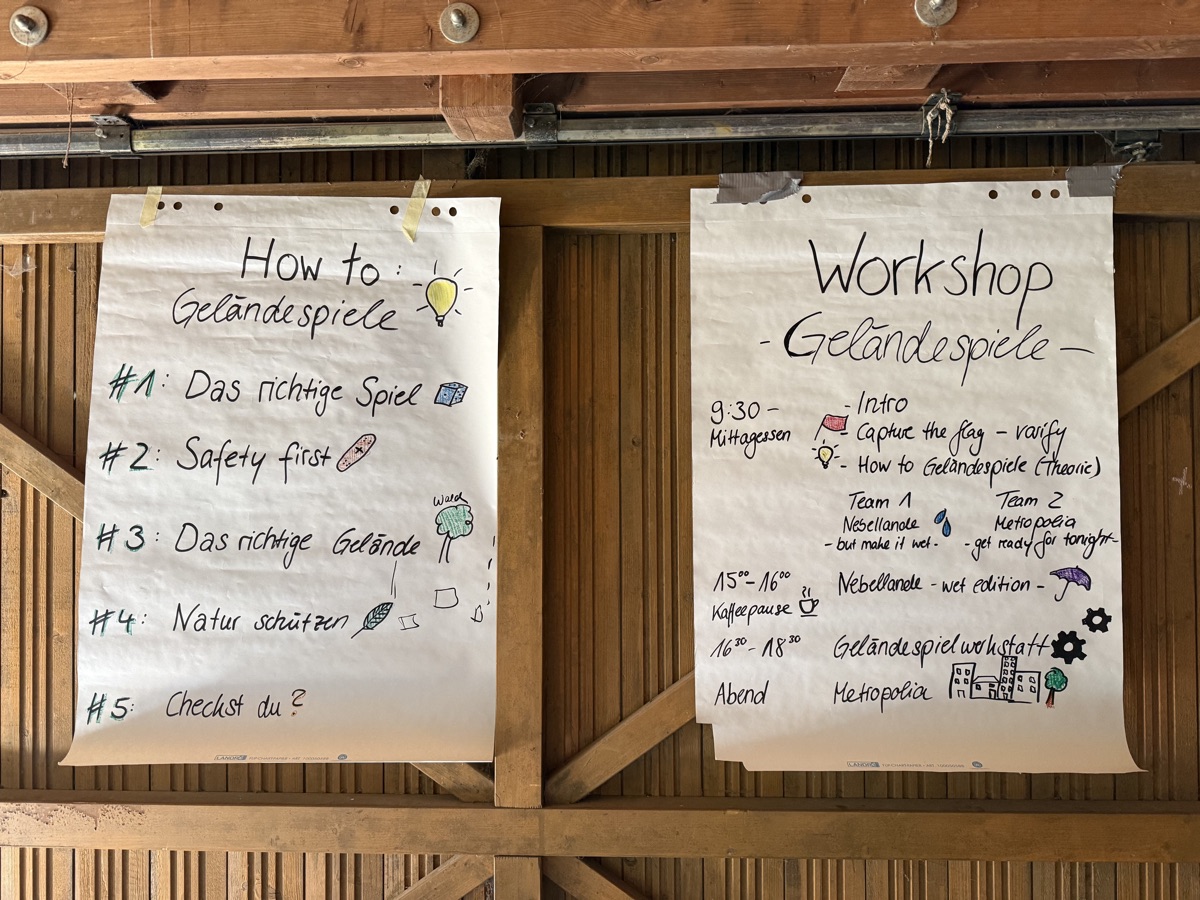 How to:
Geländespiele
#1: Das richtige Spiel
#2: Safety first
Wald
#3: Das richtige Gelände
#4: Natur schützen
#5: Checkst du?
LANDRÉ
Workshop
- Geländespiele -
9:30 - - Intro
Mittagessen - Capture the flag - varify
- How to Geländespiele (Theorie)
Team 1 Team 2
Nebellande Metropolia
- but make it wet - - get ready for tonight -
15⁰⁰ - 16⁰⁰ Nebellande - wet edition -
Kaffeepause
16³⁰ - 18³⁰ Geländespielwerkstatt
Abend Metropolia
LANDRÉ